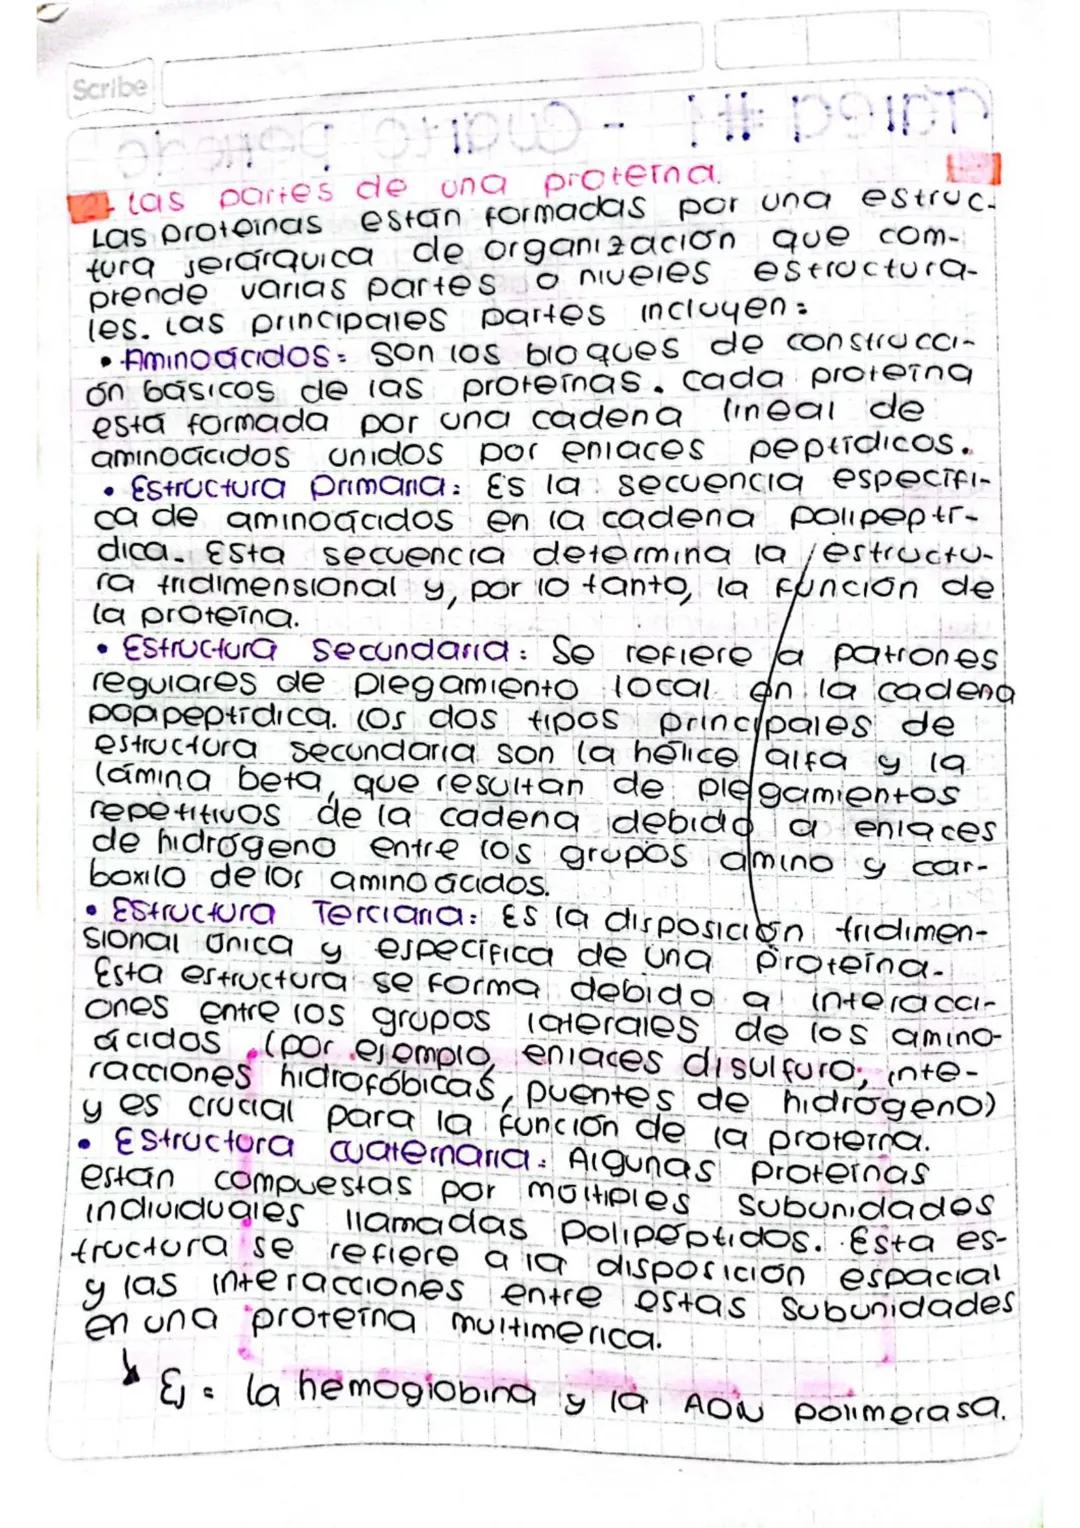 Scribe
2- Las partes de una proteína.
Las proteínas están formadas por una estruc-
tura jerárquica de organización que com-
prende varias partes o niveles estructura-
les. Las principales partes incluyen:
• Aminoácidos: Son los bloques de construcci-
ón básicos de las proteínas. Cada proteína
está formada por una cadena lineal de
aminoácidos unidos por enlaces peptídicos.
• Estructura Primaria: Es la secuencia específi-
ca de aminoácidos en la cadena polipeptí-
dica. Esta secuencia determina la estructu-
ra tridimensional y, por lo tanto, la función de
la proteína.
• Estructura Secundaria: Se refiere a patrones
regulares de plegamiento local en la cadena
popipeptídica. Los dos tipos principales de
estructura secundaria son la hélice alfa y la
lámina beta, que resultan de plegamientos
repetitivos de la cadena debido a enlaces
de hidrógeno entre los grupos amino y car-
boxilo de los aminoácidos.
• Estructura Terciaria: Es la disposición tridimen-
sional única y específica de una proteína.
Esta estructura se forma debido a interacci-
ones entre los grupos laterales de los amino-
ácidos (por ejemplo, enlaces disulfuro, inte-
racciones hidrofóbicas, puentes de hidrógeno)
y es crucial para la función de la proteína.
• Estructura cuaternaria: Algunas proteínas
están compuestas por múltiples subunidades
individuales llamadas polipéptidos. Esta es-
tructura se refiere a la disposición espacial
y las interacciones entre estas subunidades
en una proteína multimérica.
Ej: la hemoglobina y la ADN polimerasa.